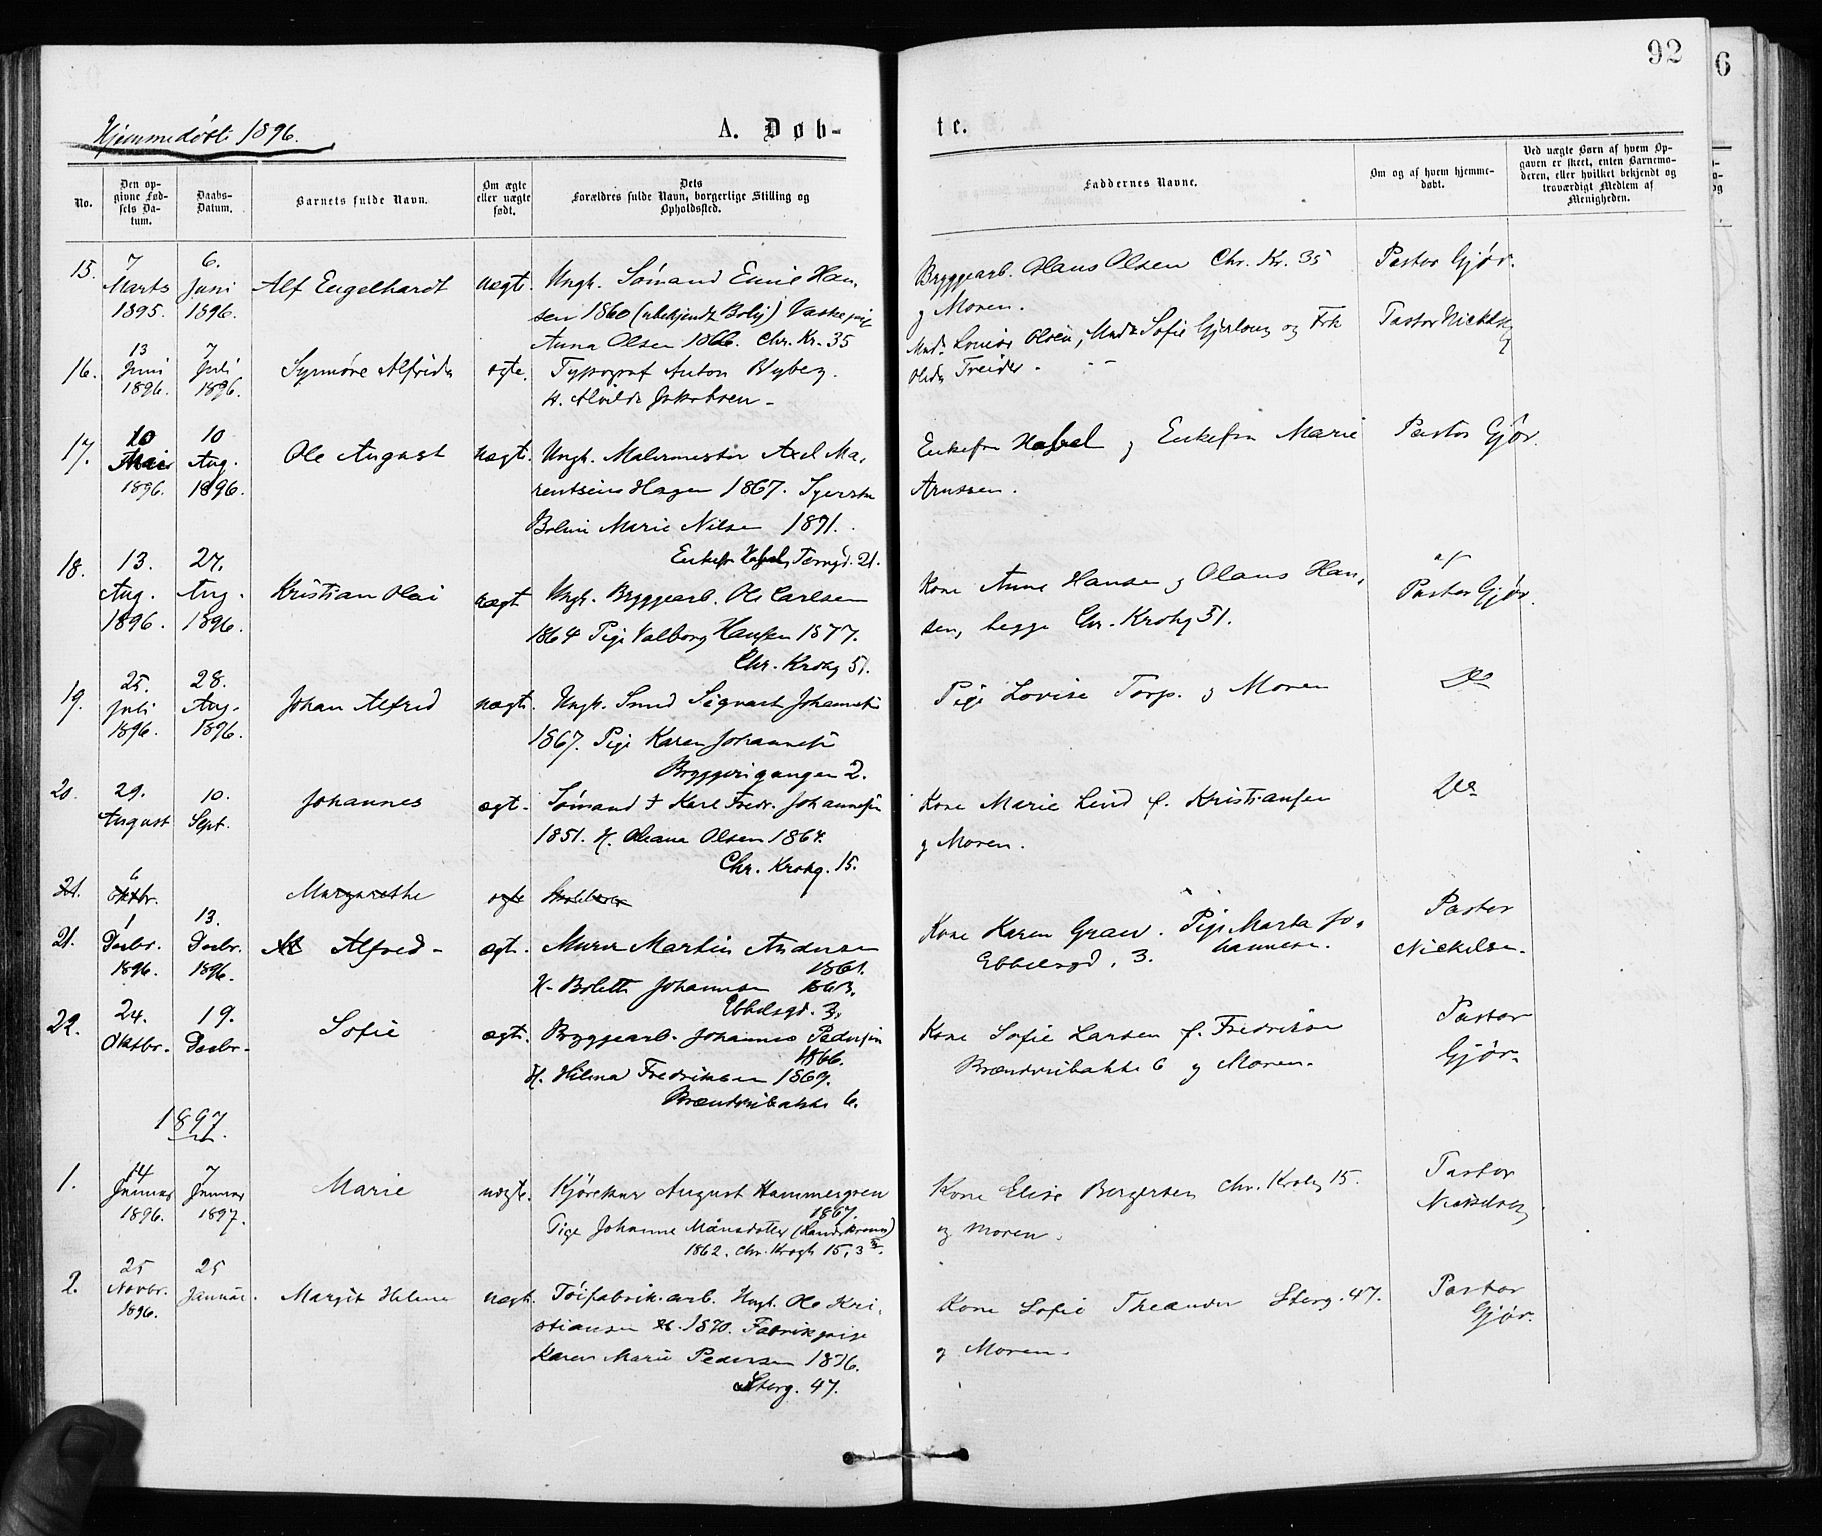 92
6
Hjemmedøbte 1896.
A. Døb-
te.
No.
Den op-
givne Fød-
sels Da-
tum.
Daabs-
Datum.
Barnets fulde Navn.
Om ægte
eller uægte
født.
Dets
Forældres fulde Navn, borgerlige Stilling og
Opholdssted.
Faddernes Navne.
Om og af hvem hjemme-
døbt.
Ved uægte Børn af hvem Op-
gaven er skeet, enten Barnemo-
deren, eller hvilket bekjendt og
troværdigt Medlem af
Menigheden.
15.
7
Marts
1895.
6.
Juni
1896.
Alf Engelhardt
uægte
Ungk. Sømand Emil Han-
sen 1860 (ubekjendt Bolig)
Anna Olsen 1866. Chr. Kr. 35
Bryggearb. Hans Olsen Chr. Kr. 35
og Moren.
Pastor Gjør.
16.
13
Juni
1896.
7
Juli
1896.
Synnøve Alfrida
ægte.
Typograf Anton Nyberg.
H. Alvilde Jakobsen -
Md. Lovise Olsen, Md. Sofie Gjerlow og Frk
Treider.
Pastor
17.
10
1896.
10
Aug.
1896.
Ole August
uægt.
Ungk. Malermester Axel Ma-
rentsius Hagen 1867. Syerske
Bolini Marie Nilsen 1871.
Enkefr Habel, Torvgd. 21.
Enkefru Habel og Enkefru Marie
Arnesen.
Pastor Gjør.
18.
13.
Aug.
1896.
27.
Aug.
1896.
Kristian Olai
uægt
Ungk. Bryggearb. Ole Carlsen
1864 Pige Valborg Hansen 1877.
Chr. Krohg 51.
Kone Anne Hansen og Olaus Han-
sen, begge Chr. Krohg 51.
af
Pastor Gjør.
19.
25.
Juli
1896.
28.
Aug.
1896.
Johan Alfred
uægte.
Ungk. Smed Sigvart Johannesen
1867. Pige Karen Johannesen
Bryggerigangen 2.
Pige Lovise Torp. og Moren
Do
20.
29.
August
10.
Sept.
Johannes
ægt.
Sømand + Karl Fredr. Johannesen
1851. H. Oleana Olsen 1864.
Chr. Krohg. 15.
Kone Marie Lind f. Kristiansen
og Moren.
Do
21.
6
Oktbr.
Margarethe
ægte
21.
1
Decbr.
1896.
13.
Decbr.
1896.
Alfred -
ægt.
Murer Martin Andersen
1861.
H. Bolette Johannesen 1863.
Ebbelsgd. 3.
Kone Karen Graev. Pige Marta Jo-
hannesen.
Ebbelsgd. 3.
Pastor
Nickelsen.
22.
24.
Oktbr.
19.
Decbr.
Sofie
ægt.
Bryggearb. Johannes Pedersen
1866.
H. Hilma Fredriksen 1869.
Brænderibakke 6.
Kone Sofie Larsen f. Fredriksen
Brænderibakke 6 og Moren.
Pastor
Gjør.
1897.
1.
14
Januar
1896.
7
Januar
1897.
Marie
uægte.
Kjørekar August Hammergren
1867.
Pige Johanne Månsdotter (Landskrona)
1862. Chr. Krogh 15, 3
Kone Elise Borgersen Chr. Krohg 15.
og moren.
Pastor
2.
25
Novbr.
1896.
25
Januar.
Margit Helene
uægt.
Tøifabrik.arb. Ungk. Ole Kri-
stiansen 1870. Fabrikpige
Karen Marie Pedersen 1876.
Sterg. 47.
Kone Sofie Theander Sterg. 47.
og Moren.
Pastor
Gjør.